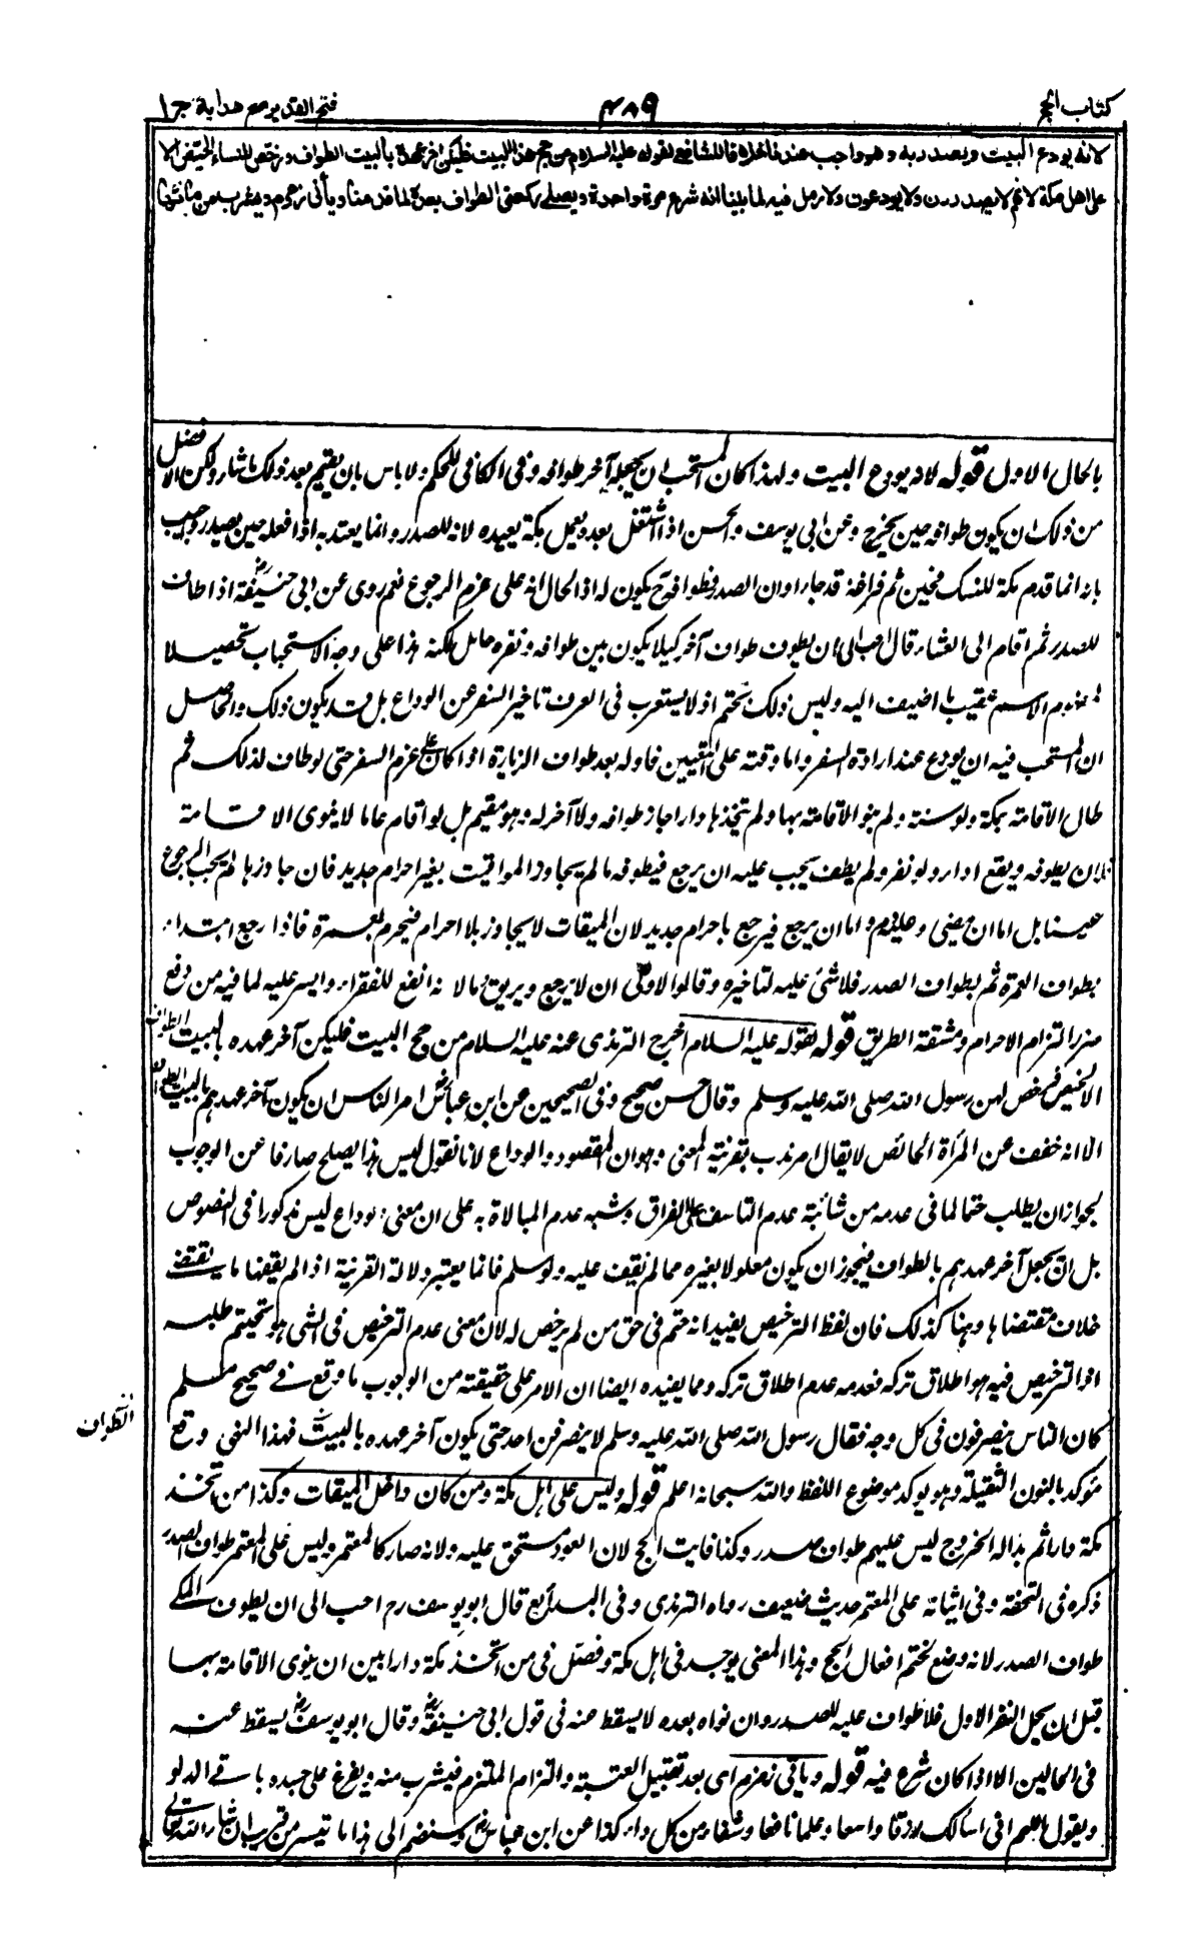 كتاب الحج
٤٨٩
فتح القدير مع هداية ج ١
لانه يودع البيت ويصدر به وهو واجب عندنا خلافا للشافعي لقوله عليه السلام من حج هذا البيت فليكن آخر عهده بالبيت الطواف ورخص للنساء الحيض الا
على اهل مكة لانهم لا يصدرون ولا يودعون ولا رمل فيه لما بينا انه شرع مرة واحدة ويصلي ركعتي الطواف بعده لما قدمنا ويأتي زمزم ويشرب من مائها
بالحال الاول قوله لانه يودع البيت ولهذا كان المستحب ان يجعله آخر طوافه وفي الكافي للحاكم ولا باس بان يقيم بعد ذلك ما شاء ولكن الافضل
من ذلك ان يكون طوافه حين يخرج وعن ابي يوسف والحسن اذا اشتغل بعده بعمل بمكة يعيده لانه للصدر وانما يعتد به اذا فعله حين يصدر واجيب
بانه انما قدم مكة للنسك فحين تم فراغه منه قد جاء اوان الصدر فطوافه ح يكون له اذ الحال انه على عزم الرجوع نعم روى عن ابي حنيفة رح اذا طاف
للصدر ثم اقام الى العشاء قال احب الي ان يطوف طواف آخر كيلا يكون بين طوافه ونفره حائل لكنه هذا على وجه الاستحباب تحصيلا
لمفهوم الاسم عقيب ما اضيف اليه وليس ذلك بحتم اذ لا يستغرب في العرف تاخير السفر عن الوداع بل قد يكون ذلك والحاصل
ان المستحب فيه ان يودع عند ارادة السفر واما وقته على التعيين فاوله بعد طواف الزيارة اذا كان على عزم السفر حتى لو طاف لذلك ثم
طال الاقامة بمكة ولو سنة ولم ينو الاقامة بها ولم يتخذها دارا جاز طوافه ولا آخر له وهو مقيم بل لو اقام عاما لا ينوى الاقامة
فله ان يطوفه ويقع اداء ولو نفر ولم يطف يجب عليه ان يرجع فيطوفه ما لم يجاوز المواقيت بغير احرام جديد فان جاوزها لم يجب الرجوع
عينا بل اما ان يمضي وعليه دم واما ان يرجع فيرجع باحرام جديد لان الميقات لا يجاوز بلا احرام فيحرم بعمرة فاذا رجع ابتداء
بطواف العمرة ثم بطواف الصدر فلا شئ عليه لتاخيره وقالوا الاولى ان لا يرجع ويريق دما لانه انفع للفقراء وايسر عليه لما فيه من دفع
ضرر التزام الاحرام ومشقة الطريق قوله لقوله عليه السلام اخرج الترمذى عنه عليه السلام من حج البيت فليكن آخر عهده بالبيت الطواف
الا الحيض فرخص لهن رسول الله صلى الله عليه وسلم وقال حسن صحيح وفي الصحيحين عن ابن عباس رض امر الناس ان يكون آخر عهدهم بالبيت الطواف
الا انه خفف عن المرأة الحائض لا يقال امر ندب بقرينة المعنى وهو ان المقصود الوداع لانا نقول ليس هذا يصلح صارفا عن الوجوب
لجواز ان يطلب حتما لما في عدمه من شائبة عدم التاسف على الفراق وشبه عدم المبالاة به على ان معنى الوداع ليس مذكورا في النصوص
بل ان يجعل آخر عهدهم بالطواف فيجوز ان يكون معلولا بغيره مما لم نقف عليه ولو سلم فانما يعتبر دلالة القرينة اذا لم يقفها ما يقتضى
خلاف مقتضاها وهنا كذلك فان لفظ الترخيص يفيد انه حتم في حق من لم يرخص له لان معنى عدم الترخيص في الشئ هو تحتيم طلبه
اذ الترخيص فيه هو اطلاق تركه فعدمه عدم اطلاق تركه ومما يفيده ايضا ان الامر على حقيقته من الوجوب ما وقع في صحيح مسلم
كان الناس ينصرفون في كل وجه فقال رسول الله صلى الله عليه وسلم لا ينصرفن احد حتى يكون آخر عهده بالبيت فهذا النهى وقع
الطواف
مؤكد بالنون الثقيلة وهو يوكد موضوع اللفظ والله سبحانه اعلم قوله وليس على اهل مكة ومن كان داخل الميقات وكذا من اتخذ
مكة دارا ثم بدا له الخروج ليس عليهم طواف صدر وكذا فايت الحج لان العود مستحق عليه ولانه صار كالمعتمر وليس على المعتمر طواف الصدر
ذكره في التحفة وفي اثباته على المعتمر حديث ضعيف رواه الترمذى وفي البدائع قال ابو يوسف رح احب الى ان يطوف المكى
طواف الصدر لانه وضع لختم افعال الحج وهذا المعنى يوجد في اهل مكة وفصل في من اتخذ مكة دارا بين ان ينوى الاقامة بها
قبل ان يحل النفر الاول فلا طواف عليه للصدر وان نواه بعده لا يسقط عنه في قول ابي حنيفة رح وقال ابو يوسف رح يسقط عنه
في الحالين الا اذا كان شرع فيه قوله وياتي زمزم اى بعد تقبيل العتبة والتزام الملتزم فيشرب منه ويفرغ على جسده باقي الدلو
ويقول اللهم اني اسألك رزقا واسعا وعلما نافعا وشفاء من كل داء كذا عن ابن عباس رض وسنضم الى هذا ما تيسر من قريب ان شاء الله تعالى